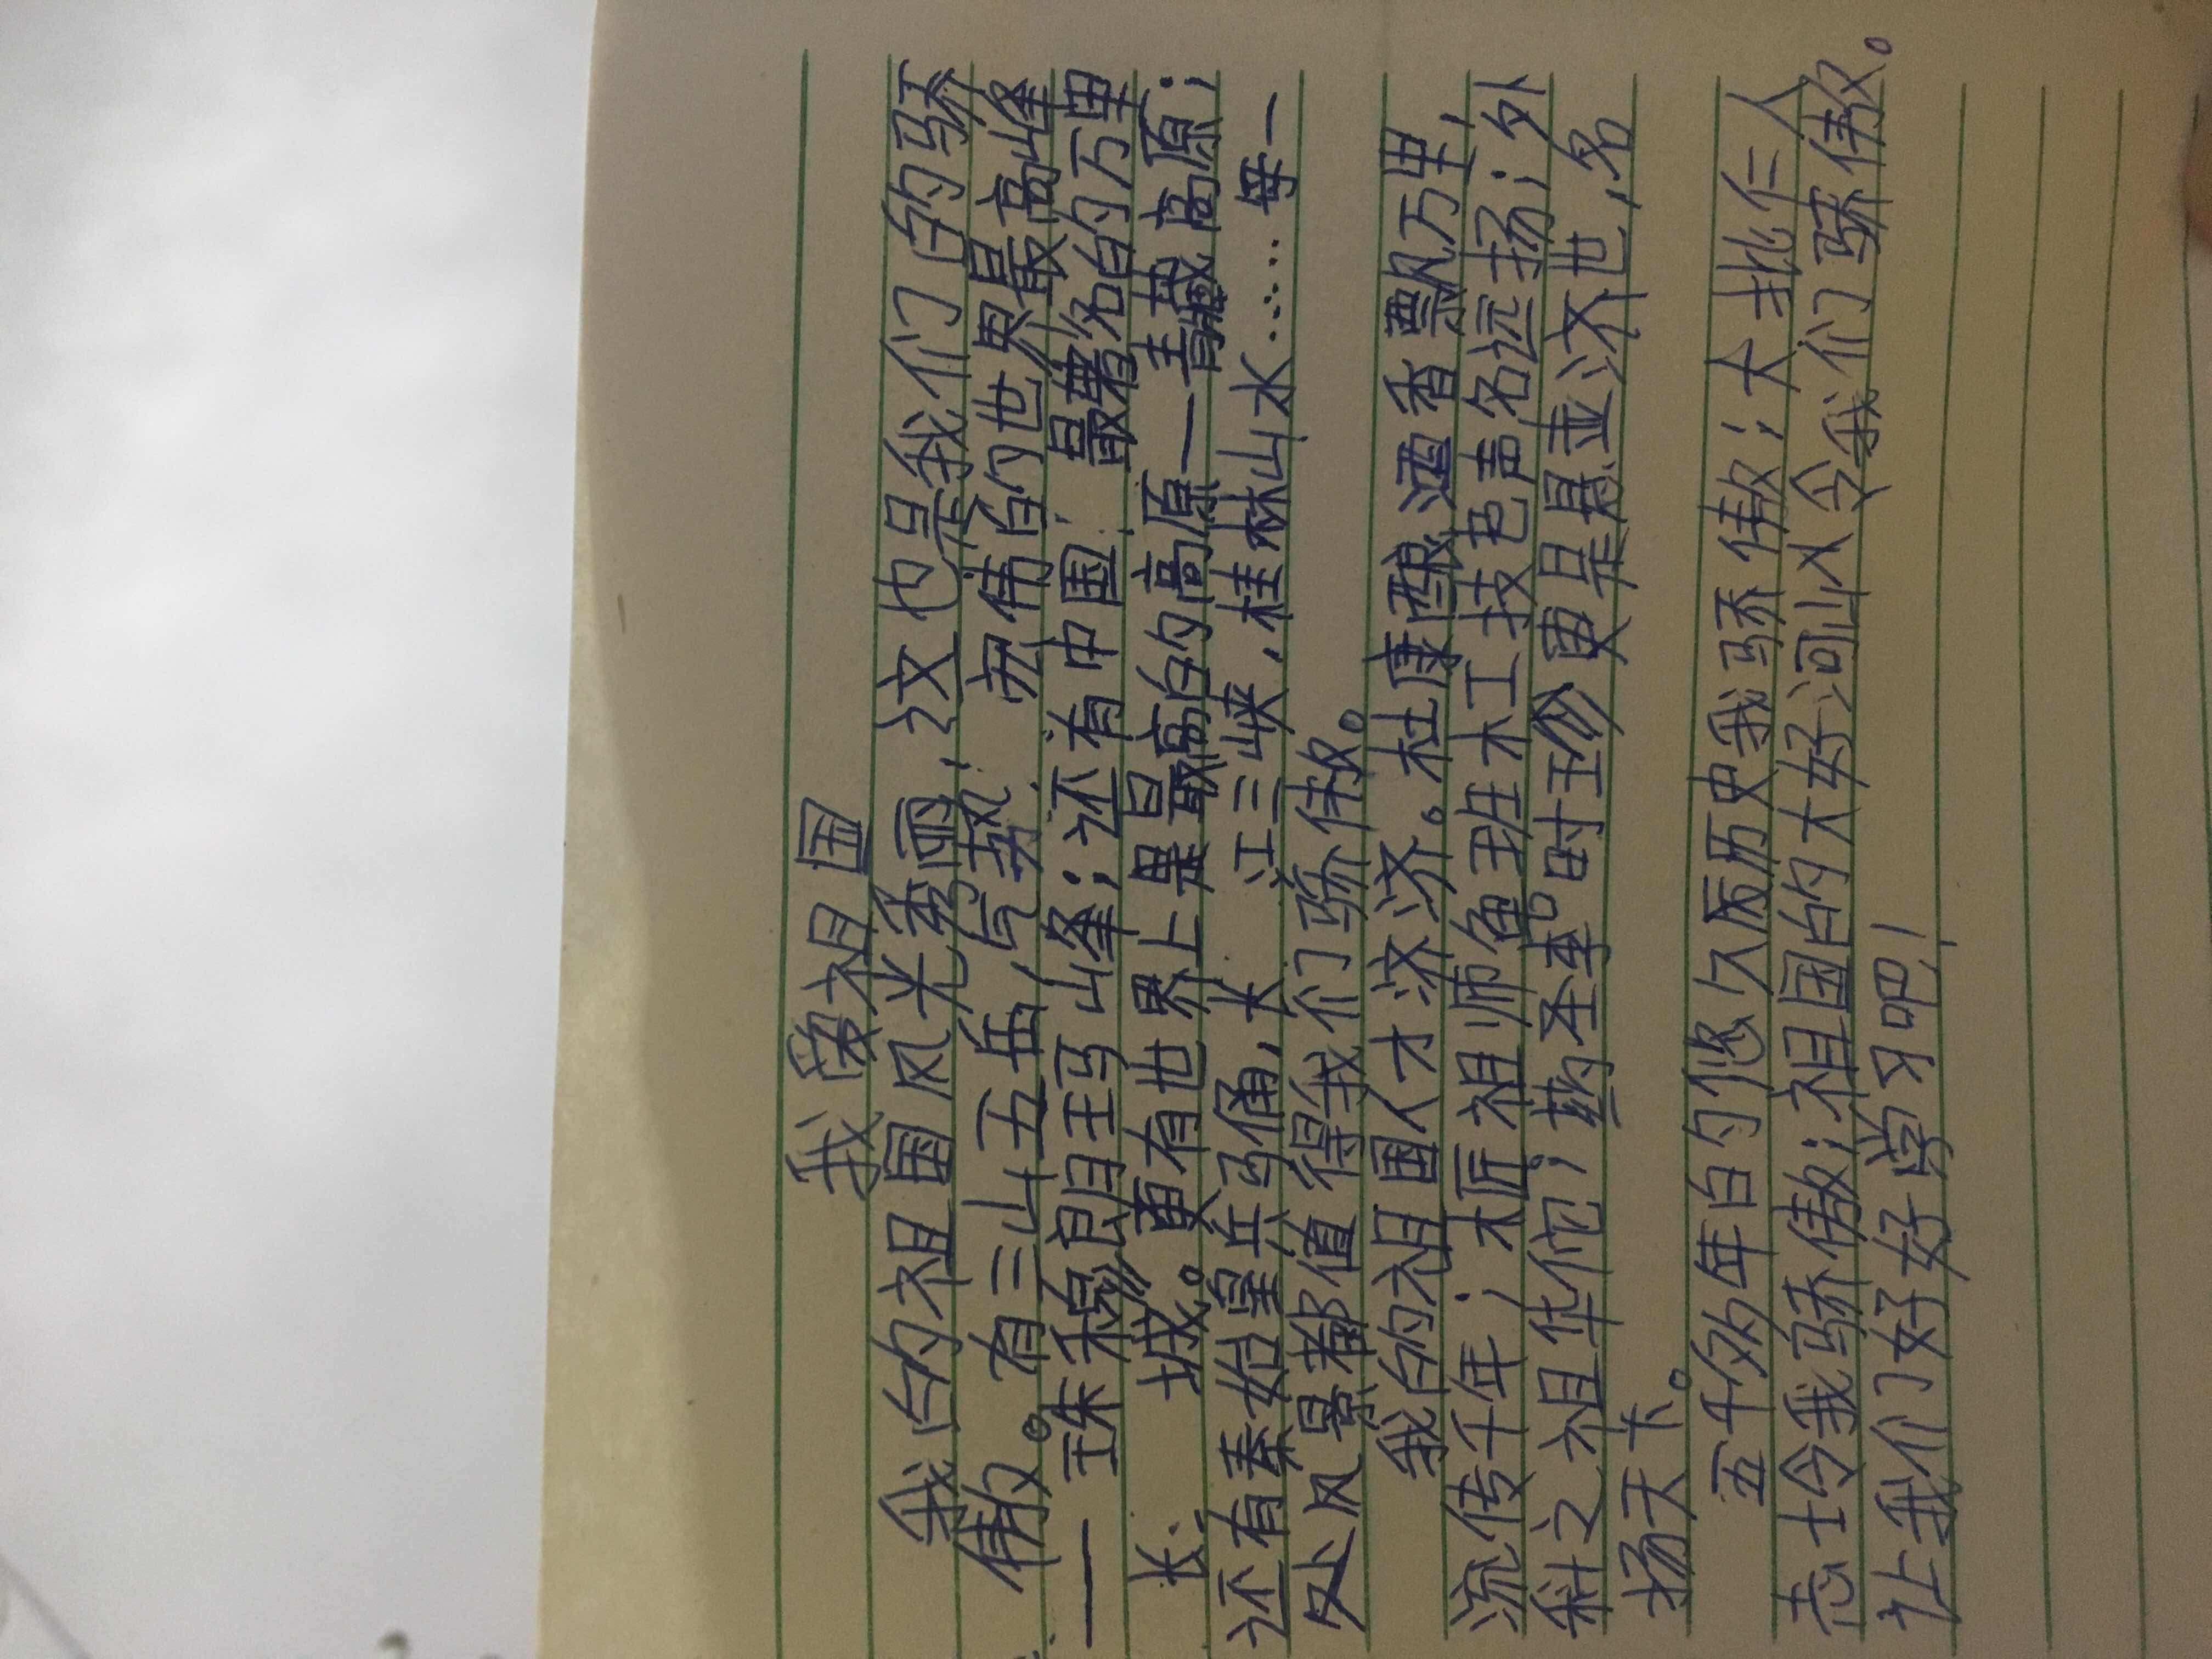 我爱祖国
我的祖国风光秀丽，这也是我们的骄
傲。有三山五岳，气势宏伟的世界最高峰
——珠穆朗玛山峰；还有中国最著名的万里
长城。更有世界上最高的高原——青藏高原；
还有秦始皇兵马俑，长江三峡，桂林山水……每一
处风景都值得我们骄傲。
我的祖国人才济济。杜康酿酒香飘万里，
流传千年；木匠祖师鲁班木工技艺声名远扬；外
科之祖华佗；药圣李时珍更是悬壶济世，名
扬天下。
五千多年的悠久历史我骄傲；大批仁人
志士令我骄傲；祖国的大好河山令我们骄傲。
让我们好好学习吧！